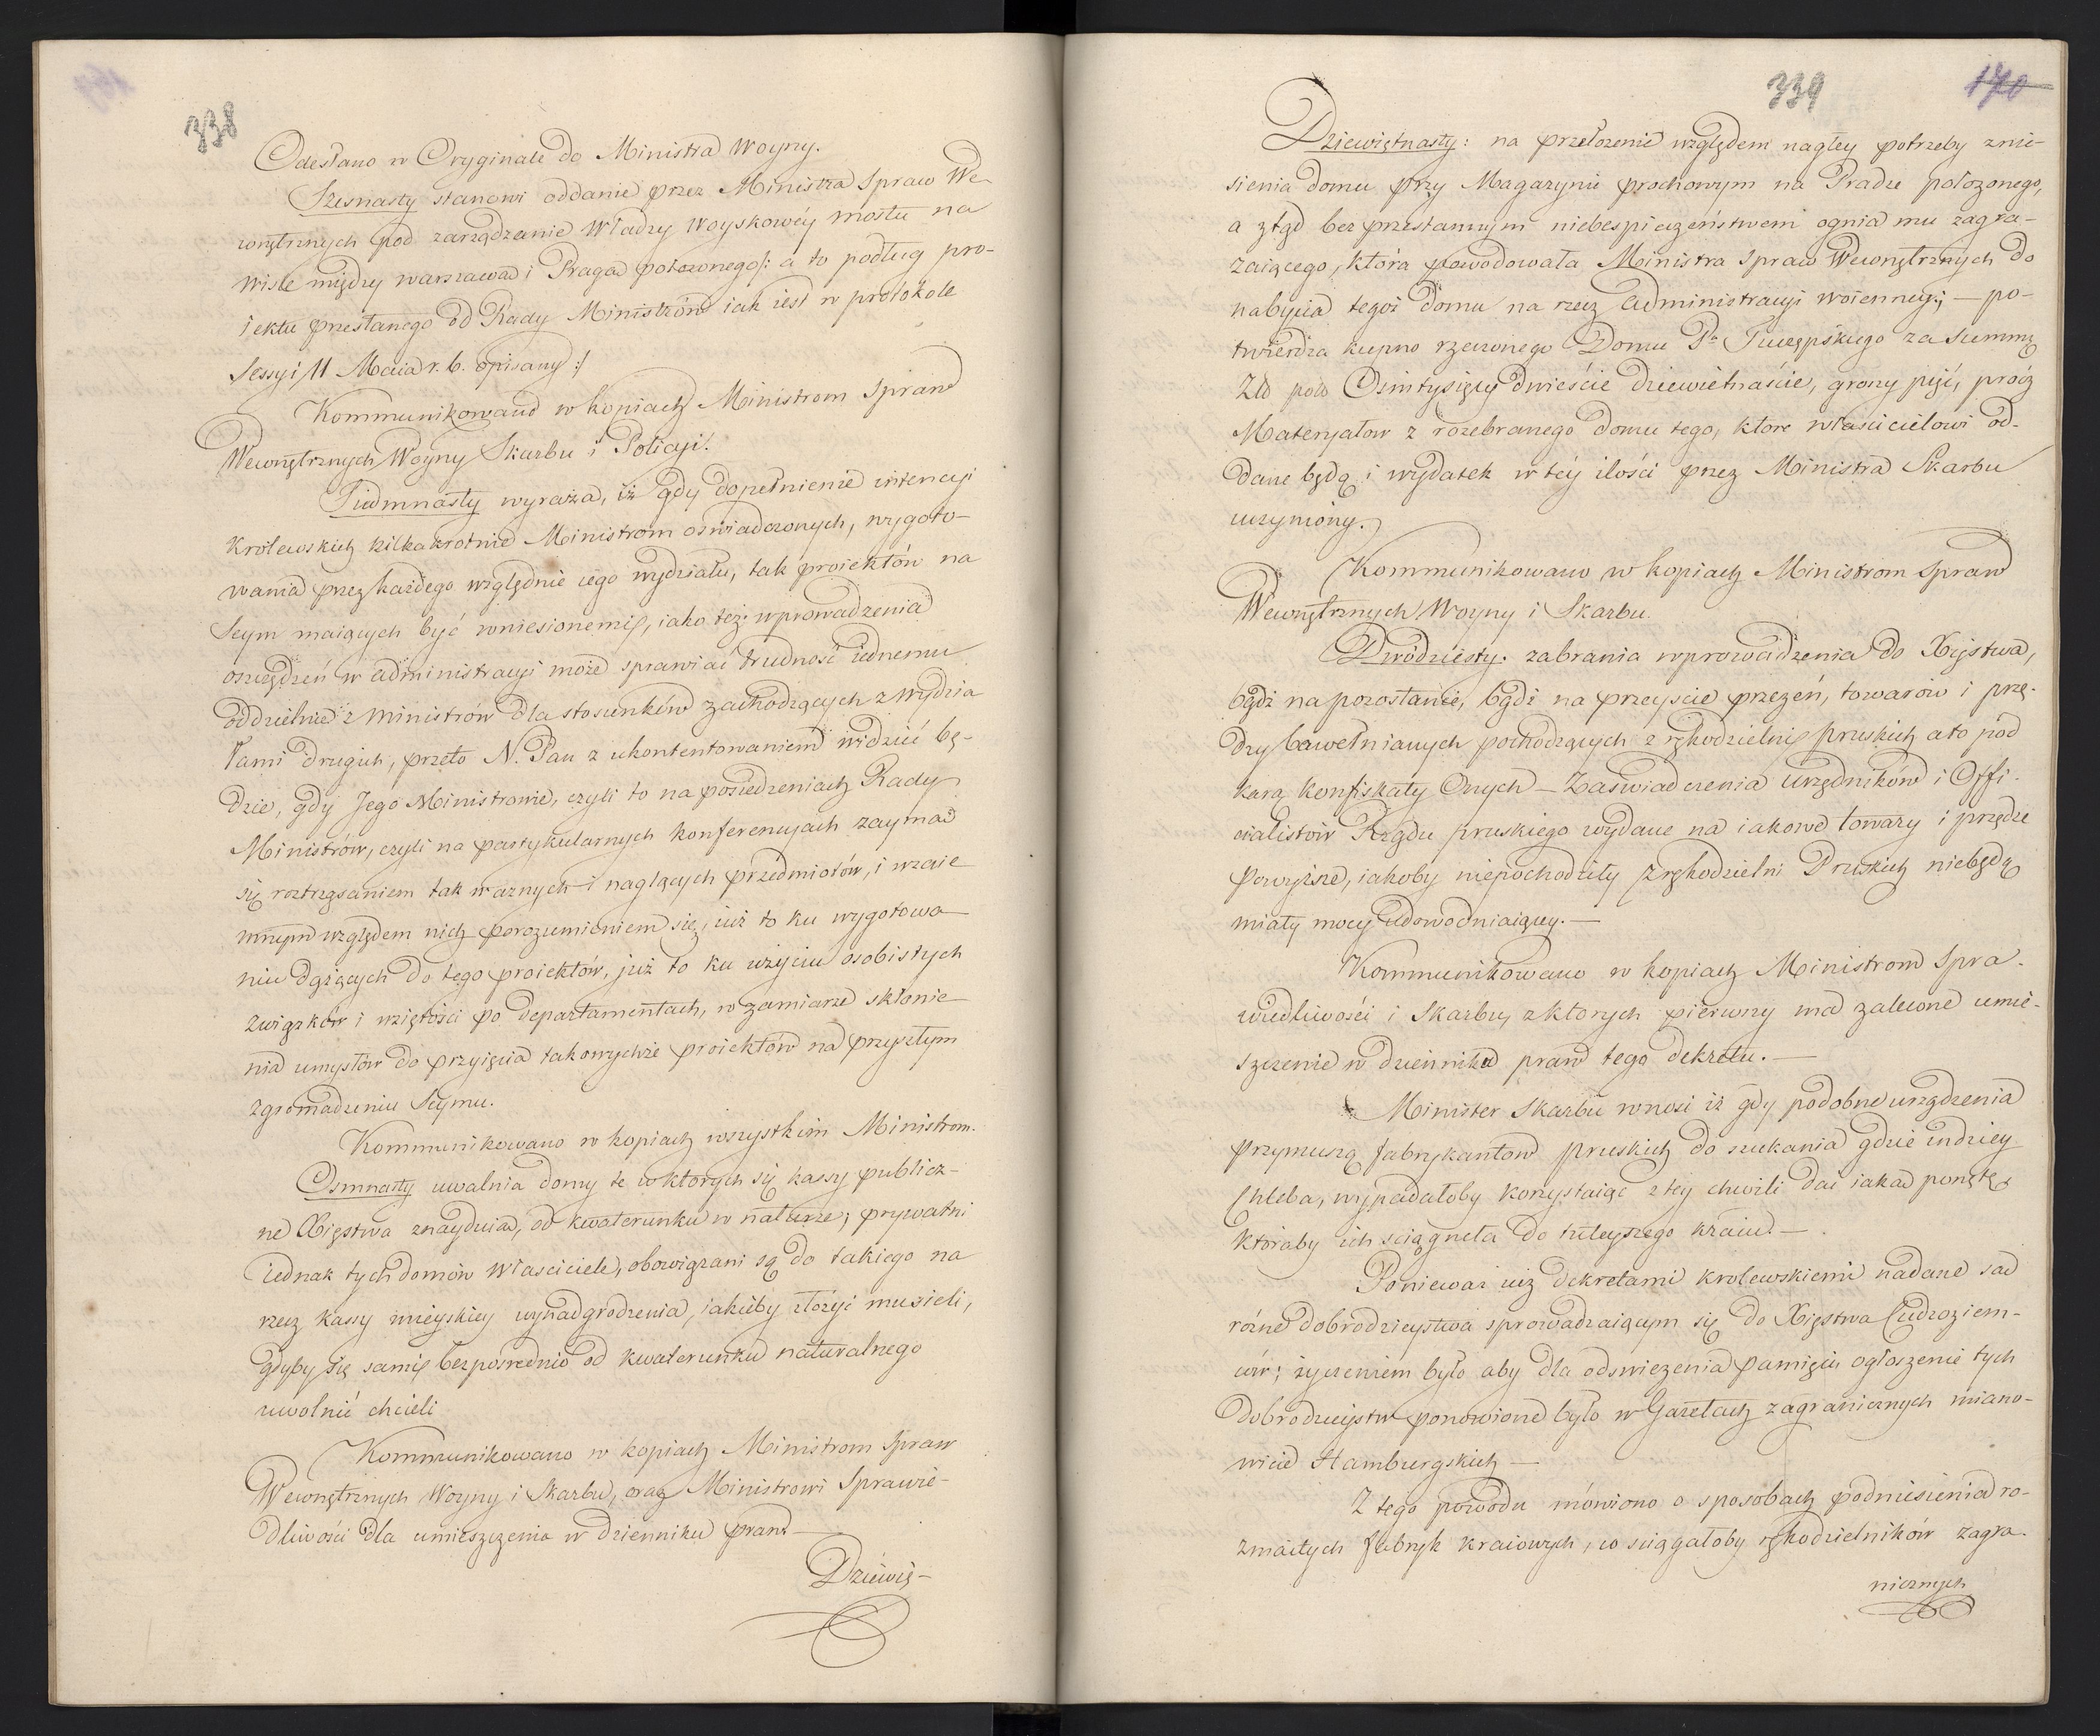 338
Odesłano w Oryginale do Ministra Woyny.
Szesnasty stanowi oddanie przez Ministra Spraw We-
wnętrznych pod zarządzenie Władzy Woyskowéy mostu na
Wiśle między warszawą i Pragą położonego/: a to podług pro-
iektu przesłanego od Rady Ministrów iak iest w protokóle
Sessyi 11 Maia r. b. opisany :/
Kommunikowano w kopiach Ministrom Spraw
Wewnętrznych Woyny Skarbu i Policyi.
Siedmnasty wyraża, iż gdy dopełnienie intencyi
Królewskich kilkakrotnie Ministrom oświadczonych, wygoto-
wania przez każdego względnie iego wydziału, tak proiektów na
Seym maiących być wniesionemi, iako też wprowadzenia
oszczędzeń w administracyi może sprawiać trudność iednemu
oddzielnie z Ministrów dla stosunków zachodzących z wydzia
łami drugich, przeto N. Pan z ukontentowaniem widzieć bę-
dzie, gdy Jego Ministrowie, czyli to na posiedzeniach Rady
Ministrów, czyli na partykularnych konferencyach zaymą
się roztrząsaniem tak ważnych i naglących przedmiotów, i wzaie
mnym względem nich porozumieniem się, iuż to ku wygotowa
niu dążących do tego proiektów, już to ku użyciu osobistych
związków i wziętości po departamentach, w zamiarze skłonie
nia umysłów do przyięcia takowychże proiektów na przyszłym
zgromadzeniu Seymu.
Kommunikowano w kopiach wszystkim Ministrom.
Osmnasty uwalnia domy te w których się kassy publicz-
ne Xięstwa znayduią, od kwaterunku w naturze; prywatni
iednak tych domów Właściciele, obowiązani są do takiego na
rzecz kassy mieyskiey wynadgrodzenia, jakieby złożyć musieli,
gdyby się sami bezpośrednio od kwaterunku naturalnego
uwolnić chcieli
Kommunikowano w kopiach Ministrom Spraw
Wewnętrznych Woyny i Skarbu, oraz Ministrowi Sprawie-
dliwości dla umieszczenia w dzienniku praw —
Dziewię-
339
170
Dziewiętnasty: na przełożenie względem nagłey potrzeby znie-
sienia domu przy Magazynie prochowym na Pradze położonego,
a ztąd bezprzestannym niebespieczeństwem ognia mu zagra-
żaiącego, która powodowała Ministra Spraw Wewnętrznych do
nabycia tegoż domu na rzecz administracyi woienney; — po-
twierdza kupno rzeczonego Domu za Summę
Zło pols Ośmtysięcy dwieście dziewietnaście, groszy pięć, prócz
Materyałów z rozebranego domu tego, które właścicielowi od-
dane będą i wydatek w téy ilości przez Ministra Skarbu
uczyniony.
Kommunikowano w kopiach Ministrom Spraw
Wewnętrznych Woyny i Skarbu.
Dwódziesty: zabrania wprowadzenia do Xięstwa,
bądź na pozostanie, bądź na przeyscie przezeń, towarów i przę-
dzy bawełnianych pochodzących z rękodzielni pruskich a to pod
karą konfiskaty Onych — Zaświadczenia Urzędników i Offi-
cialistów Rządu pruskiego wydane na iakowe towary i przędze
powyższe, iakoby niepochodziły z rękodzielni Pruskich niebędą
miały mocy udowodniaiącey. —
Kommunikowano w kopiach Ministrom Spra-
wiedliwości i Skarbu, z których pierwszy ma zalecone umie-
szczenie w dzienniku praw tego dekretu. —
Minister Skarbu wnosi iż gdy podobne urządzenia
przymuszą fabrykantów pruskich do szukania gdzie indziey
Chleba, wypadałoby korzystaiąc z tey chwili dać iaką ponętę
któraby ich sciągneła do tuteyszego kraiu. —
Ponieważ iuż dekretami krolewskiemi nadane są
różne dobrodzieystwa sprowadzaiącym się do Xięstwa Cudzoziem-
ców; życzeniem było aby dla odświeżenia pamięci ogłoszenie tych
dobrodzieystw ponowione było w Gazetach zagranicznych miano-
wicie Hamburgskich —
Z tego powodu mówiono o sposobach podniesienia ro-
zmaitych fabryk kraiowych, co sciągałoby rękodzielników zagra-
nicznych